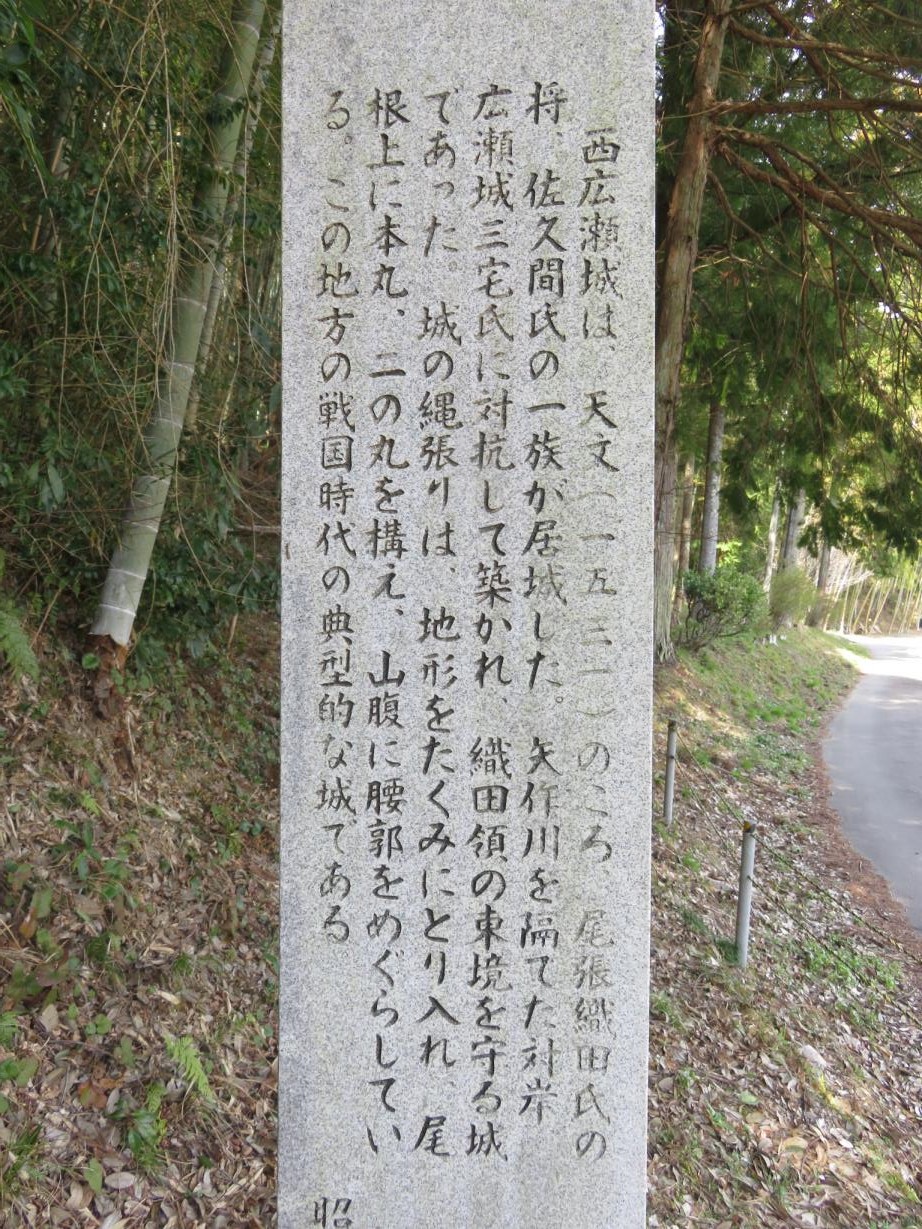 西広瀬城は、天文（一五三一）のころ、尾張織田氏の
将、佐久間氏の一族が居城した。矢作川を隔てた対岸
広瀬城三宅氏に対抗して築かれ、織田領の東境を守る城
であった。城の縄張りは、地形をたくみにとり入れ、尾
根上に本丸、二の丸を構え、山腹に腰郭をめぐらしてい
る。この地方の戦国時代の典型的な城である
昭